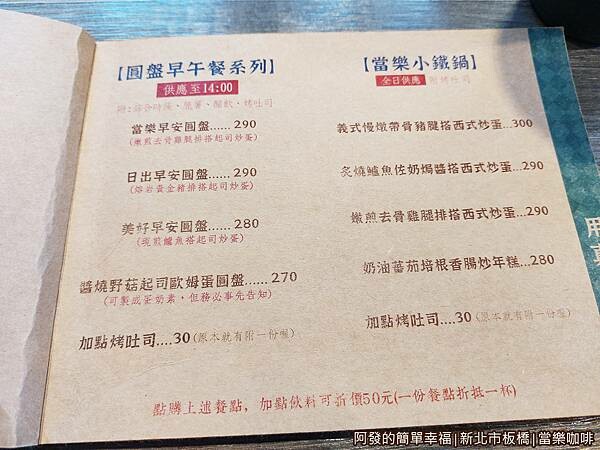 【圓盤早午餐系列】
供應至14:00
附:綜合時蔬、脆薯、優飲、烤吐司
當樂早安圓盤......290
(嫩煎去骨雞腿排搭起司炒蛋)
日出早安圓盤......290
(熔岩黃金豬排搭起司炒蛋)
美好早安圓盤......280
(現煎鱸魚搭起司炒蛋)
醬燒野菇起司歐姆蛋圓盤......270
(可製成蛋奶素,但務必事先告知)
加點烤吐司....30(原本就有附一份喔)
【當樂小鐵鍋】
全日供應 附烤吐司
義式慢燉帶骨豬腿搭西式炒蛋...300
炙燒鱸魚佐奶焗醬搭西式炒蛋...290
嫩煎去骨雞腿排搭西式炒蛋...290
奶油蕃茄培根香腸炒年糕...280
加點烤吐司....30(原本就有附一份喔)
點購上述餐點,加點飲料可折價50元(一份餐點折抵一杯)
阿發的簡單幸福|新北市板橋|當樂咖啡